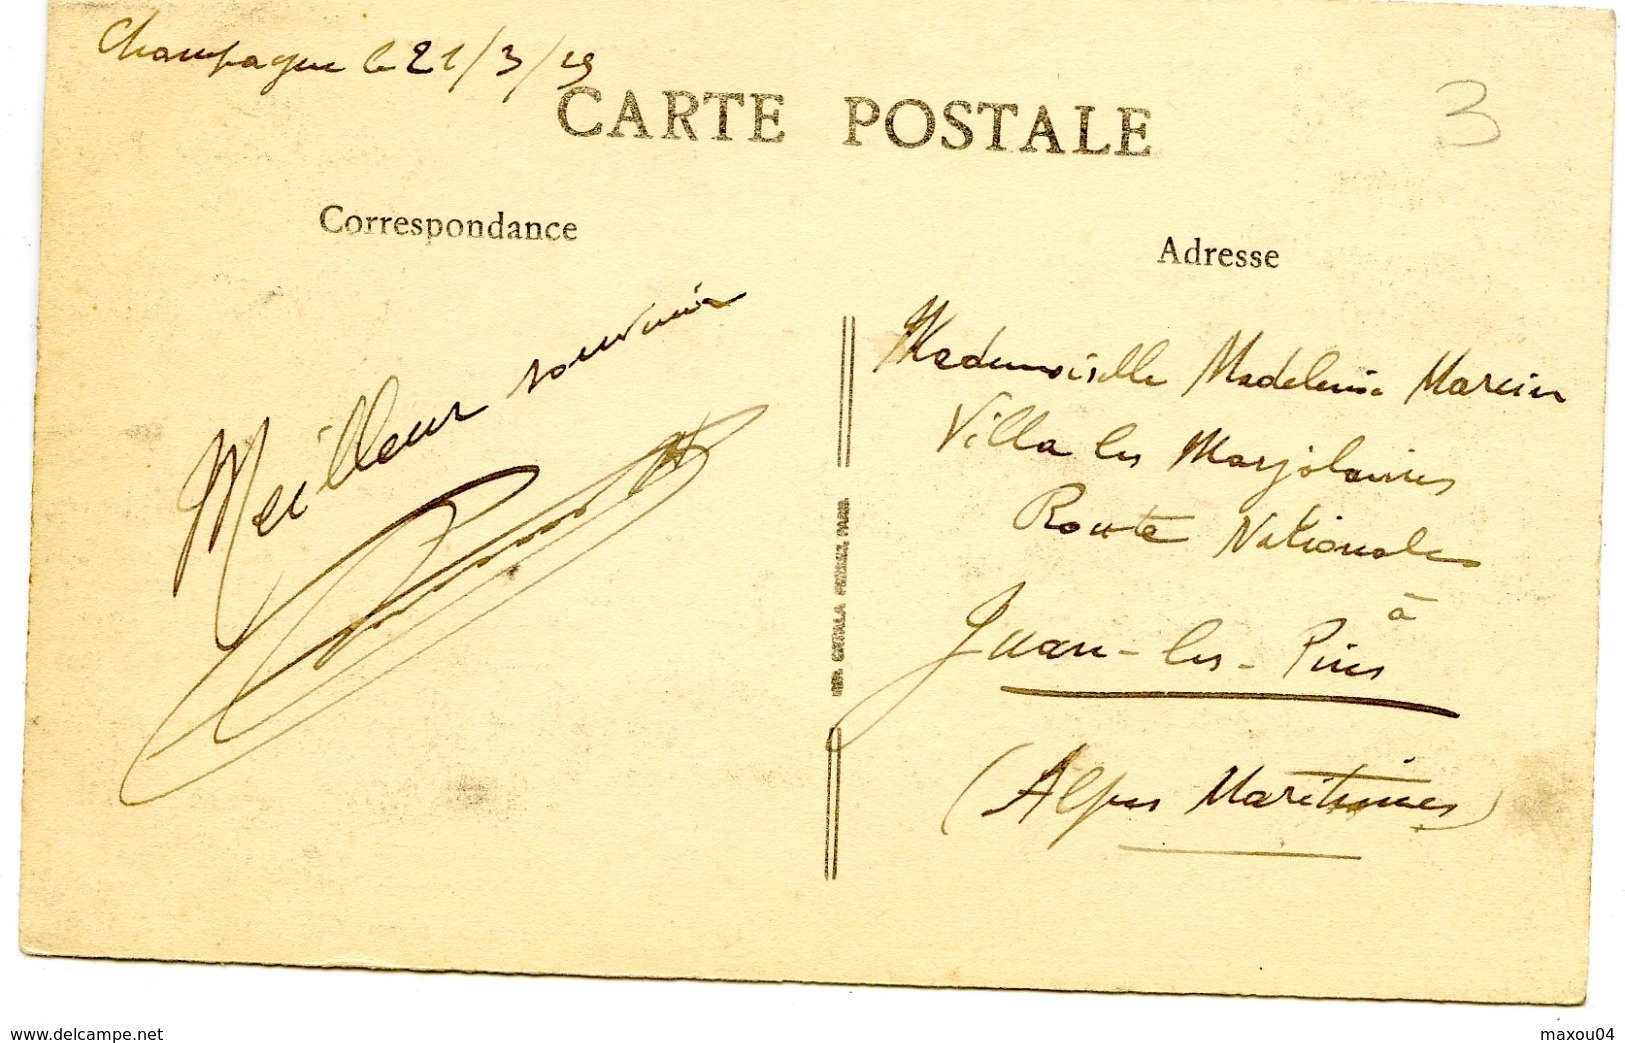 Champagne le 21/3/19
CARTE POSTALE
3
Correspondance
Adresse
Meilleur souvenir
Mademoiselle Madeleine Marcin
Villa les Marjolaines
Route Nationale
à
Juan-les-Pins
(Alpes Maritimes)
IMP. CATALA FRÈRES, PARIS
www.delcampe.net
maxou04